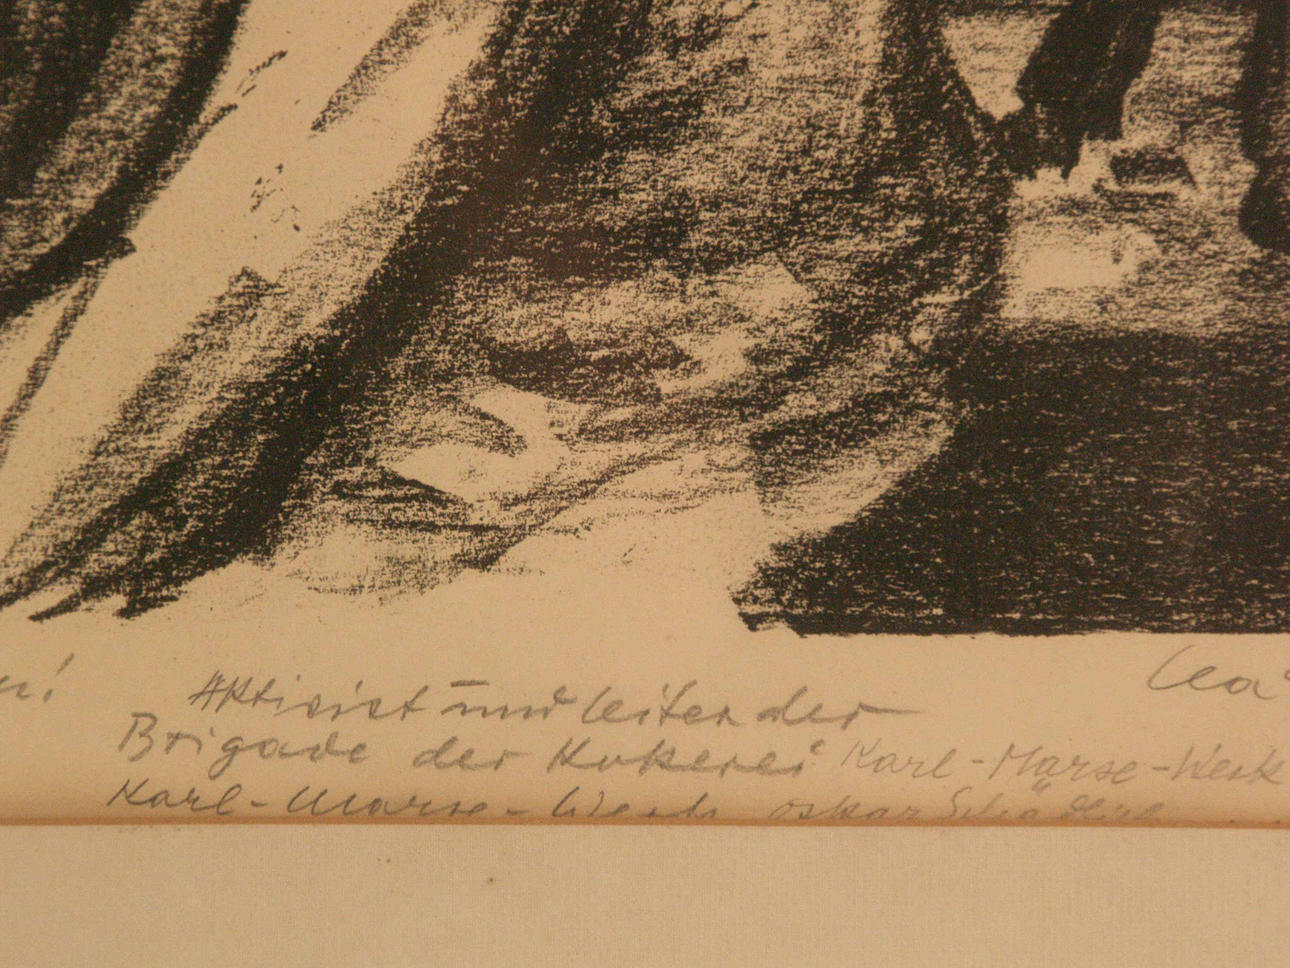 Aktivist und Leiter der
Brigade der Kokerei Karl-Marx-Werk
Karl-Marx-Werk Oskar